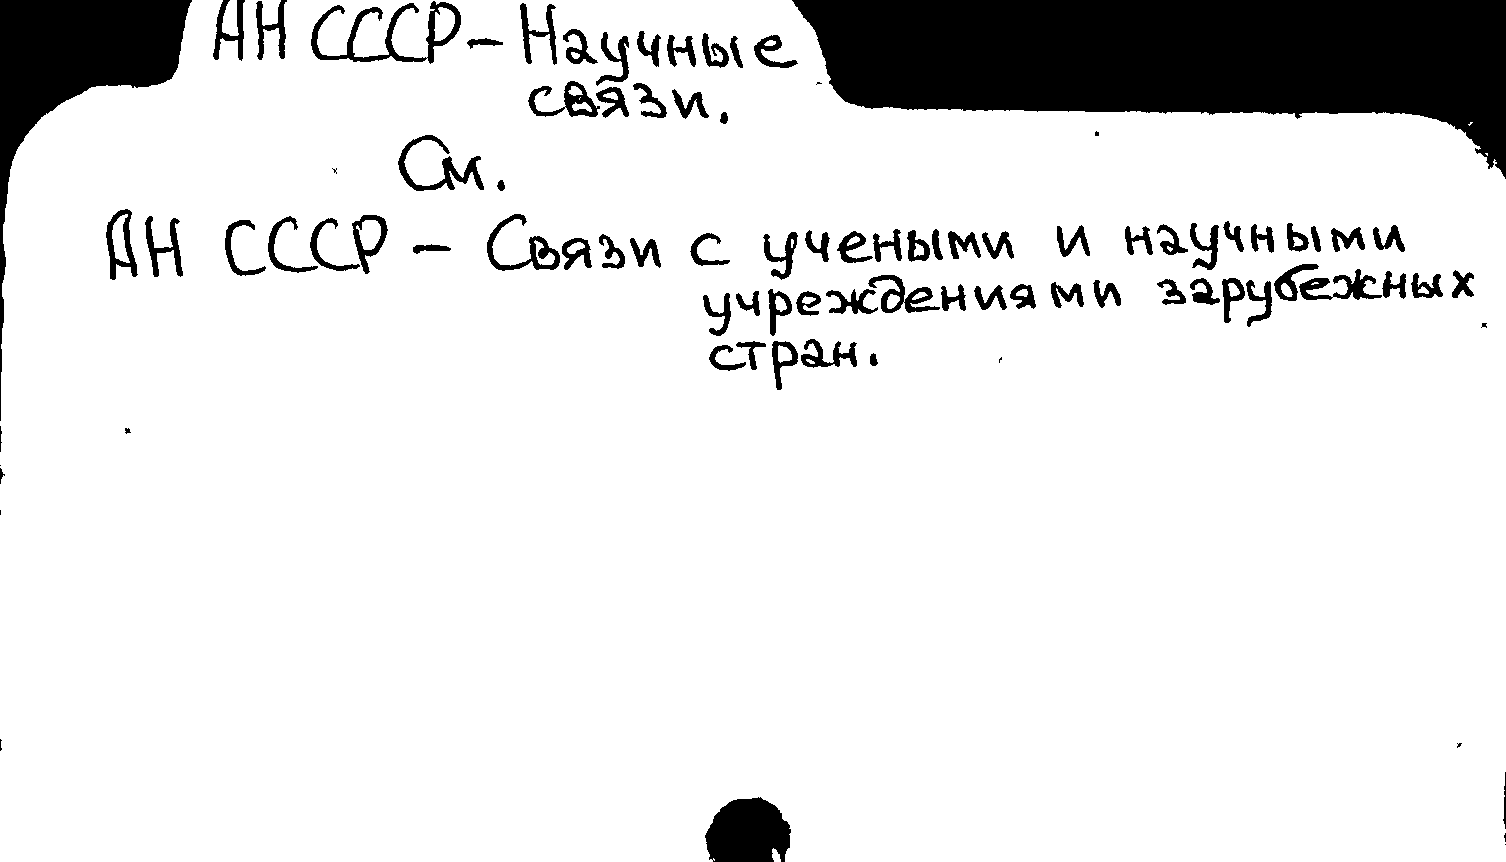 АН СССР – Научные
связи.
См.
АН СССР – Связи с учеными и научными
учреждениями зарубежных
стран.